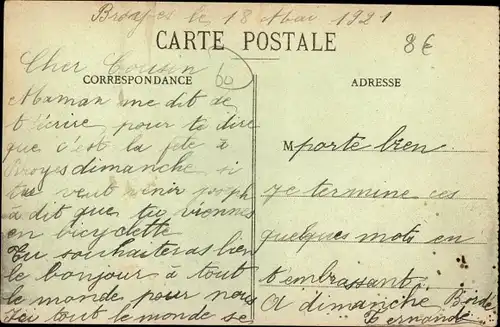 Broyes le 18 Mai 1921
8€
CARTE POSTALE
60
CORRESPONDANCE
ADRESSE
Cher Cousin
Maman me dit de
t'écrire pour te dire
que c'est la fête à
Broyes dimanche si
tu veut venir joseph
a dit que tu viennes
en bicyclette
Tu souhaiteras bien
le bonjour à tout
le monde pour nous
Ici tout le monde se
M porte bien
Je termine ces
quelques mots en
t'embrassant
A dimanche
Fernande